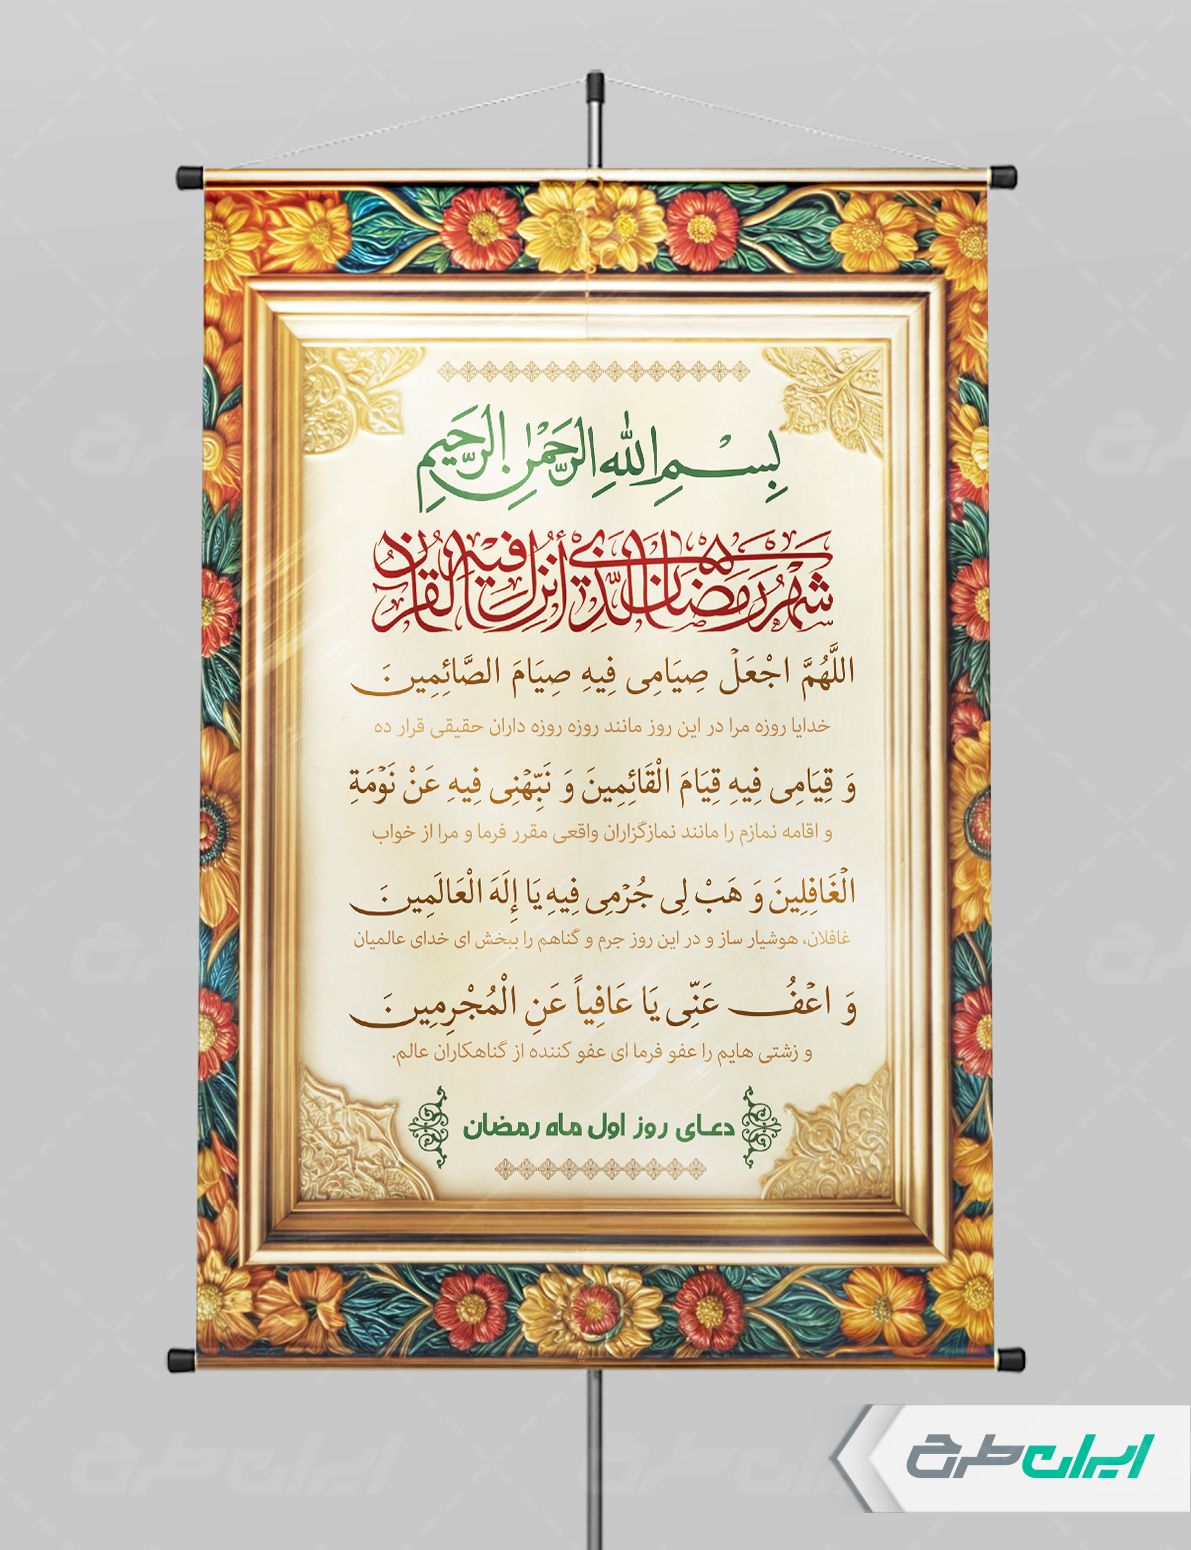 بِسْمِ اللهِ الرَّحْمٰنِ الرَّحیمِ
شَهْرُ رَمَضانَ الَّذِي أُنْزِلَ فيهِ الْقُرْآنُ
اللَّهُمَّ اجْعَلْ صِيَامِى فِيهِ صِيَامَ الصَّائِمِينَ
خدایا روزه مرا در این روز مانند روزه روزه داران حقیقی قرار ده
وَ قِيَامِى فِيهِ قِيَامَ الْقَائِمِينَ وَ نَبِّهْنِى فِيهِ عَنْ نَوْمَةِ
و اقامه نمازم را مانند نمازگزاران واقعی مقرر فرما و مرا از خواب
الْغَافِلِينَ وَ هَبْ لِى جُرْمِى فِيهِ يَا إِلَهَ الْعَالَمِينَ
غافلان، هوشیار ساز و در این روز جرم و گناهم را ببخش ای خدای عالمیان
وَ اعْفُ عَنِّى يَا عَافِياً عَنِ الْمُجْرِمِينَ
و زشتی هایم را عفو فرما ای عفو کننده از گناهکاران عالم.
دعای روز اول ماه رمضان
ایران طرح